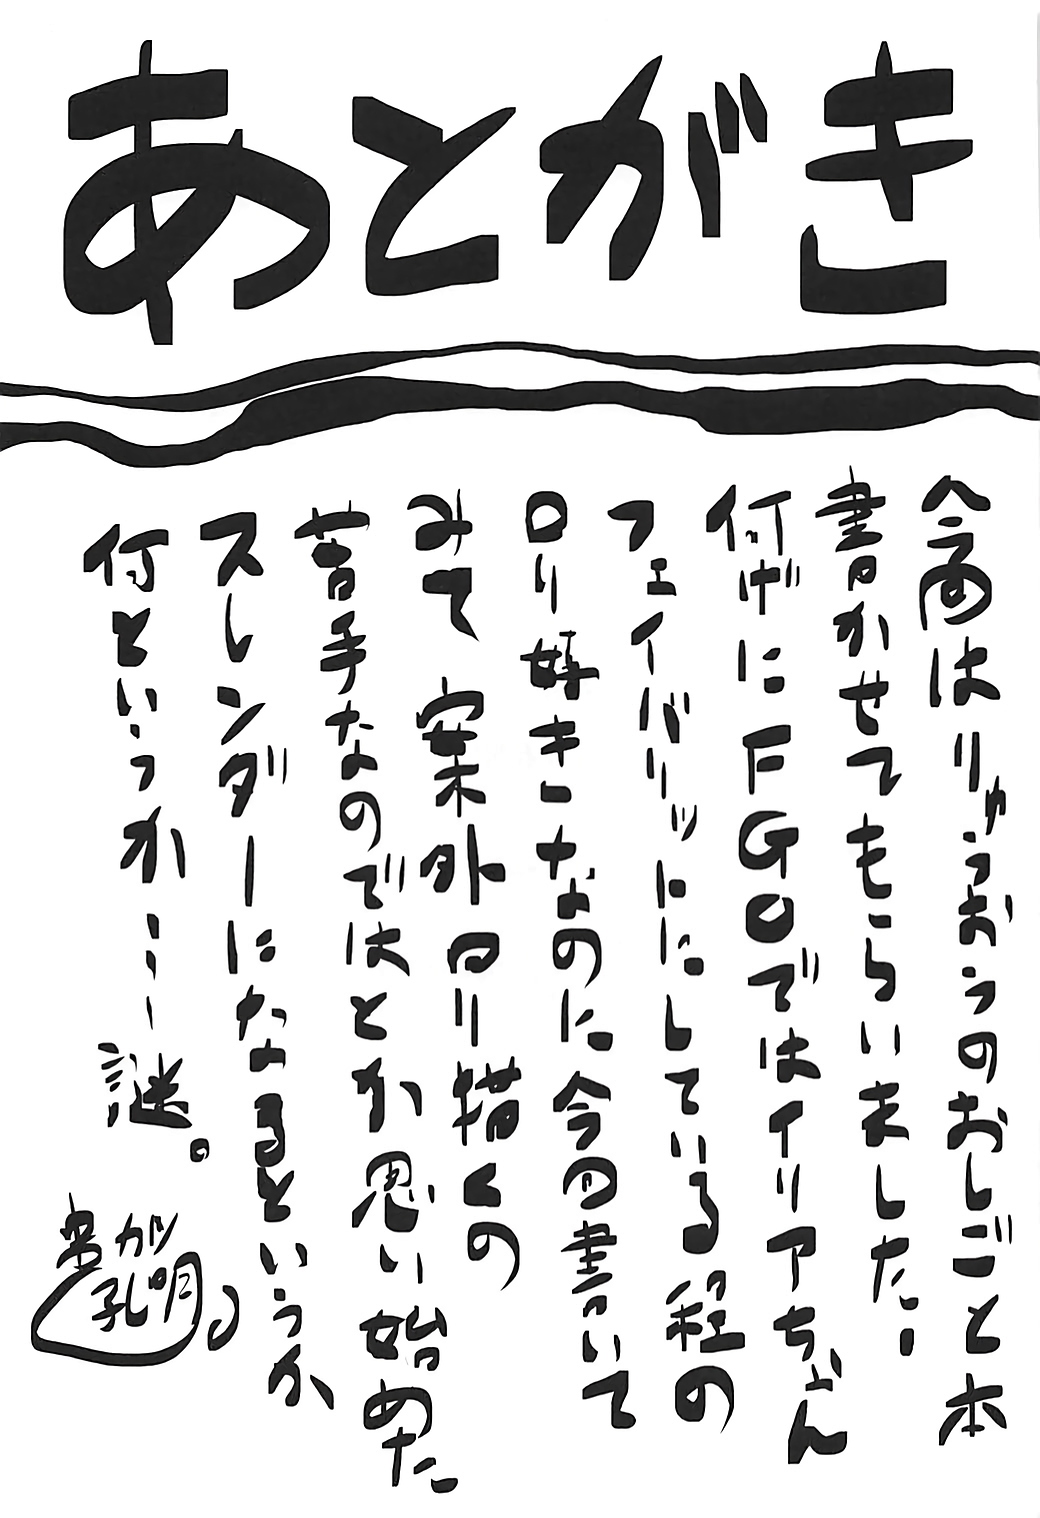 あとがき
今回はりゅうおうのおしごと本
書かせてもらいました！
何げにFGOではイリアちゃん
フェイバリットにしている程の
ロリ好きなのに今回書いて
みて案外ロリ描くの
苦手なのではとか思い始めた
スレンダーになるというか
何というか…！謎。